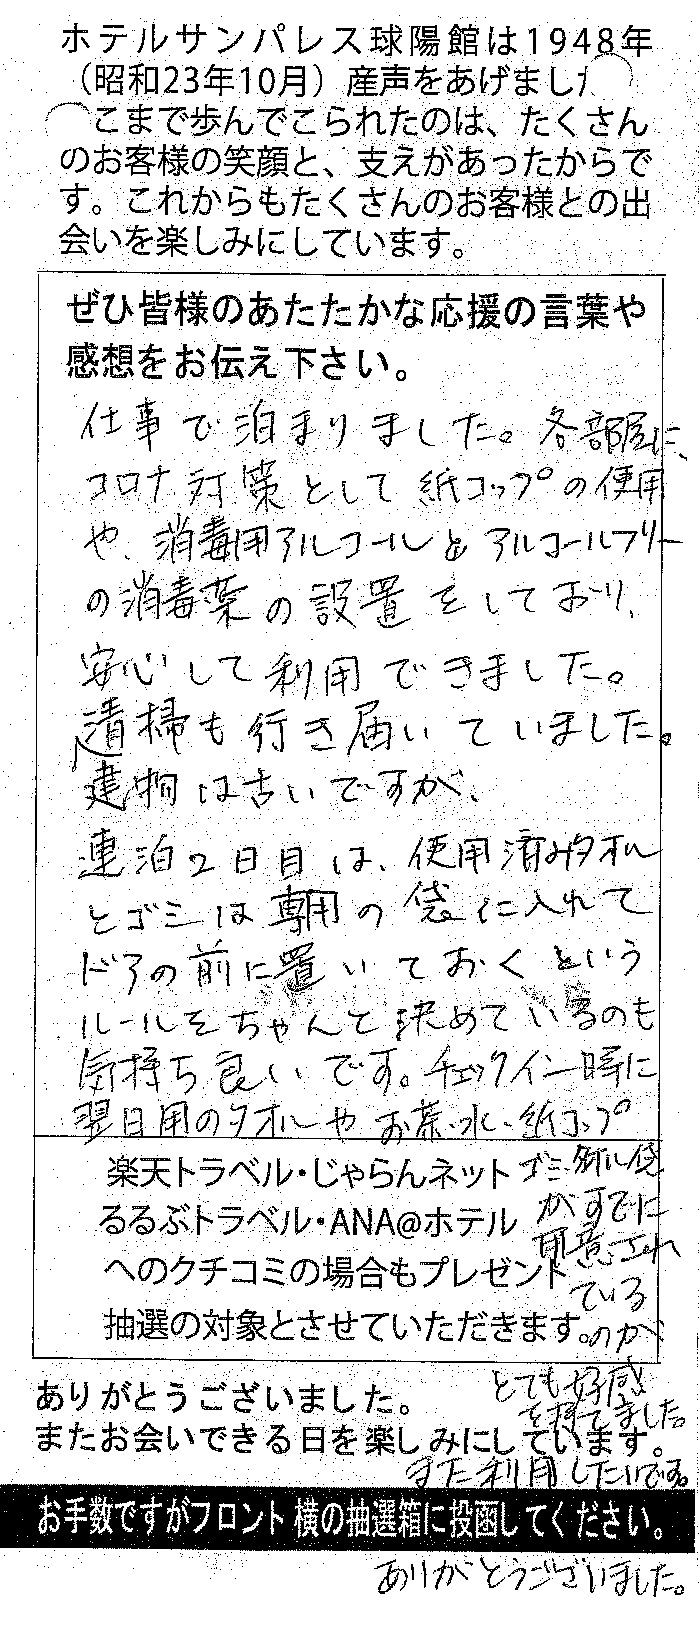 ホテルサンパレス球陽館は1948年
（昭和23年10月）産声をあげました
こまで歩んでこられたのは、たくさん
のお客様の笑顔と、支えがあったからで
す。これからもたくさんのお客様との出
会いを楽しみにしています。
ぜひ皆様のあたたかな応援の言葉や
感想をお伝え下さい。
仕事で泊まりました。各部屋に、
コロナ対策として紙コップの使用
や、消毒用アルコールとアルコールフリー
の消毒薬の設置をしており、
安心して利用できました。
清掃も行き届いていました。
建物は古いですが、
連泊2日目は、使用済みタオル
とゴミは専用の袋に入れて
ドアの前に置いておくという
ルールをちゃんと決めているのも
気持ち良いです。チェックイン時に
翌日用のタオルやお茶、水、紙コップ
ゴミ、タオル袋
がすでに
用意され
ている
のが
とても好感
を持てました。
また利用したいです。
ありがとうございました。
楽天トラベル・じゃらんネット
るるぶトラベル・ANA@ホテル
へのクチコミの場合もプレゼント
抽選の対象とさせていただきます。
ありがとうございました。
またお会いできる日を楽しみにしています。
お手数ですがフロント横の抽選箱に投函してください。